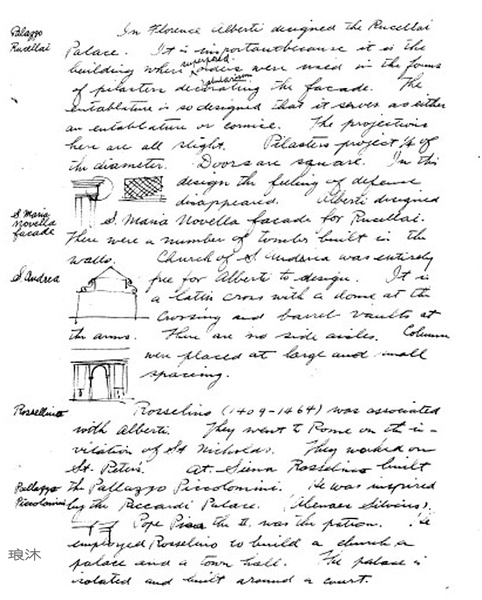 Palazzo
Rucellai
In Florence Alberti designed the Rucellai
Palace. It is important because it is the
building where superposed orders were used in the form
of pilasters decorating the facade. The
entablature is so designed that it serves as either
an entablature or cornice. The projections
here are all slight. Pilasters project 1/4 of
the diameter. Doors are square. In this
design the feeling of defense
disappeared. Alberti designed
S. Maria
Novella
facade
S. Maria Novella facade for Rucellai.
There were a number of tombs built in the
walls. Church of S. Andrea was entirely
S. Andrea
free for Alberti to design. It is
a latin cross with a dome at the
crossing and barrel vaults at
the arms. There are no side aisles. Column
were placed at large and small
spacing.
Rossellino
Rosselino (1409-1464) was associated
with Alberti. They went to Rome on the in-
vitation of St Nicholas. They worked on
St. Peters. At Siena Rosselino built
Pallazzo
Piccolomini
the Pallazzo Piccolomini. He was inspired
by the Riccardi Palace.
Pope Pius the II. was the patron. He
employed Rosselino to build a church a
palace and a town hall. The palace is
isolated and built around a court.
琅沐